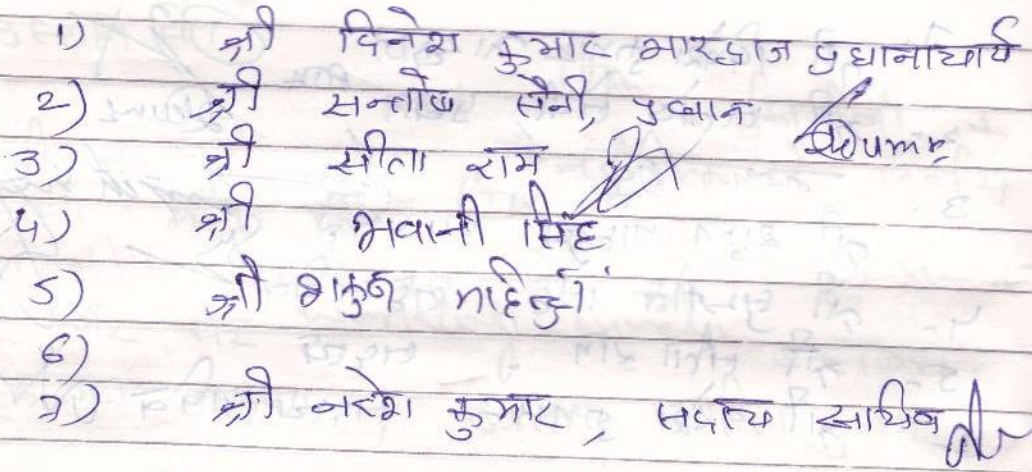 1) श्री दिनेश कुमार भारद्वाज प्रधानाचार्य
2) श्री सन्तोष सैनी, प्रधान
3) श्री सीता राम
4) श्री भवानी सिंह
5) श्री शकुन
6)
7) श्री नरेश कुमार, सदस्य सचिव